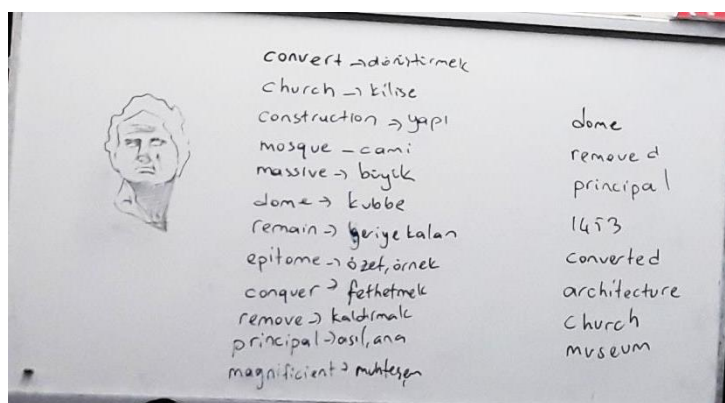 convert → dönüştirmek
church → kilise
construction → yapı
mosque – cami
massive → büyük
dome → kubbe
remain → geriye kalan
epitome → özet, örnek
conquer → fethetmek
remove → kaldırmak
principal → asıl, ana
magnificient → muhteşem
dome
removed
principal
1453
converted
architecture
church
museum